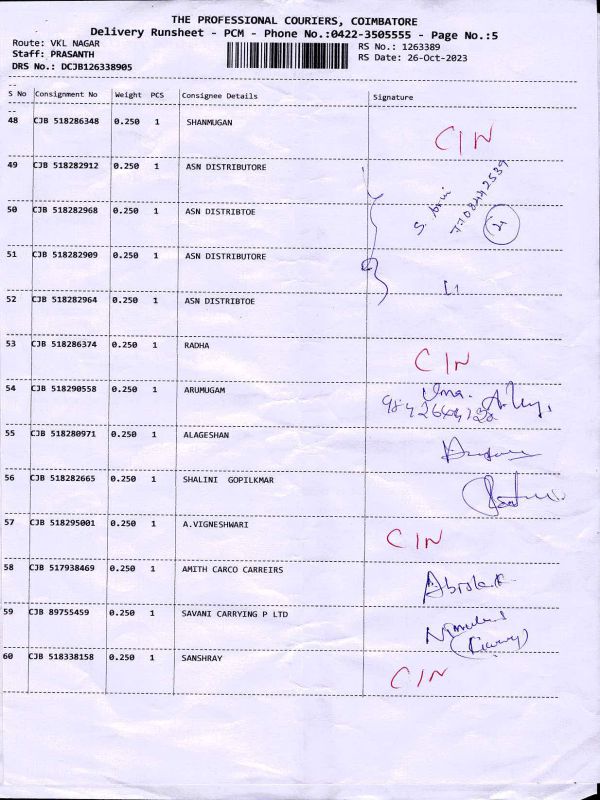 THE PROFESSIONAL COURIERS, COIMBATORE
Delivery Runsheet - PCM - Phone No.:0422-3505555 - Page No.:5
Route: VKL NAGAR
RS No.: 1263389
Staff: PRASANTH
RS Date: 26-Oct-2023
DRS No.: DCJB126338905
--
S No Consignment No Weight PCS Consignee Details Signature
--
48 CJB 518286348 0.250 1 SHANMUGAN CIN
49 CJB 518282912 0.250 1 ASN DISTRIBUTORE
50 CJB 518282968 0.250 1 ASN DISTRIBTOE 7708442539
51 CJB 518282909 0.250 1 ASN DISTRIBUTORE
52 CJB 518282964 0.250 1 ASN DISTRIBTOE
53 CJB 518286374 0.250 1 RADHA CIN
54 CJB 518290558 0.250 1 ARUMUGAM Uma.
55 CJB 518280971 0.250 1 ALAGESHAN
56 CJB 518282665 0.250 1 SHALINI GOPILKMAR
57 CJB 518295001 0.250 1 A.VIGNESHWARI CIN
58 CJB 517938469 0.250 1 AMITH CARCO CARREIRS
59 CJB 89755459 0.250 1 SAVANI CARRYING P LTD
60 CJB 518338158 0.250 1 SANSHRAY CIN